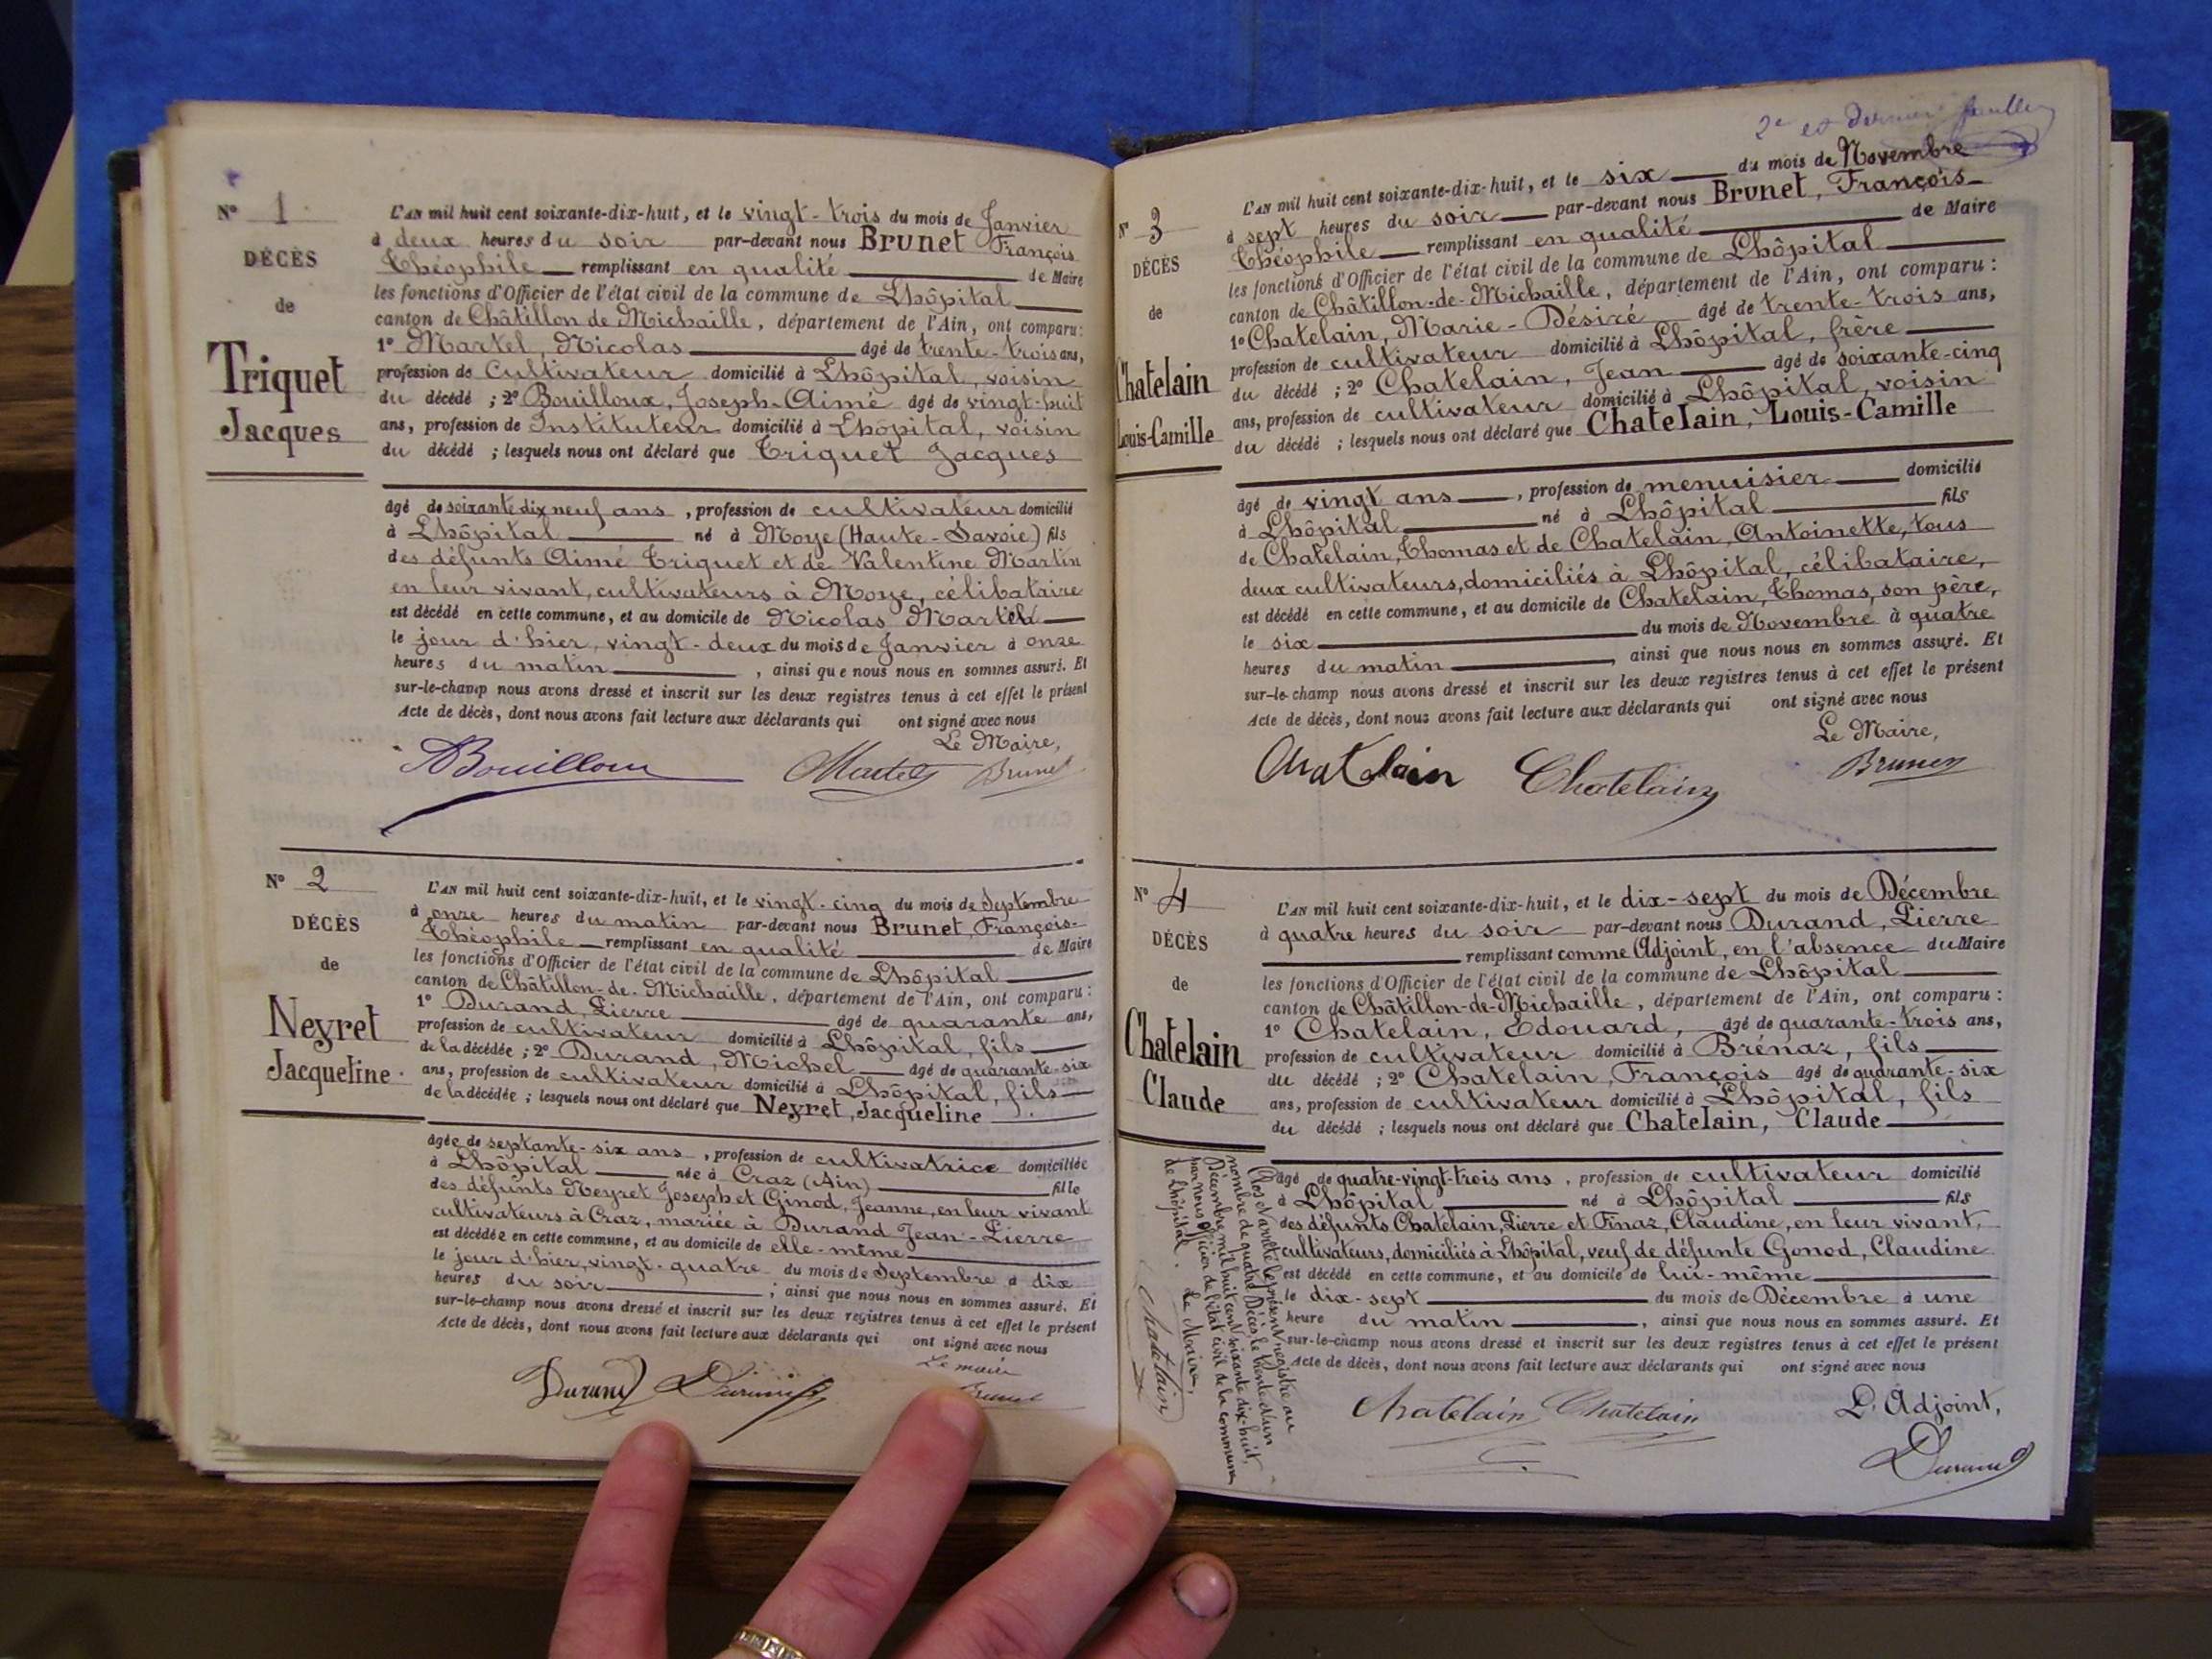 N° 1
DÉCÈS
de
Triquet
Jacques
L'AN mil huit cent soixante-dix-huit, et le vingt-trois du mois de Janvier
à deux heures du soir par-devant nous Brunet François
Théophile remplissant en qualité de Maire
les fonctions d'Officier de l'état civil de la commune de Lhôpital
canton de Châtillon de Michaille, département de l'Ain, ont comparu:
1° Martel, Nicolas âgé de trente-trois ans,
profession de Cultivateur domicilié à Lhôpital, voisin
du décédé ; 2° Bouilloux, Joseph-Aimé âgé de vingt-huit
ans, profession de Instituteur domicilié à Lhôpital, voisin
du décédé ; lesquels nous ont déclaré que Triquet Jacques
âgé de soixante dix neuf ans, profession de cultivateur domicilié
à Lhôpital né à Moye (Haute-Savoie) fils
des défunts Aimé Triquet et de Valentine Martin
en leur vivant, cultivateurs à Moye, célibataire
est décédé en cette commune, et au domicile de Nicolas Martel
le jour d'hier, vingt-deux du mois de Janvier à onze
heures du matin, ainsi que nous nous en sommes assuré. Et
sur-le-champ nous avons dressé et inscrit sur les deux registres tenus à cet effet le présent
Acte de décès, dont nous avons fait lecture aux déclarants qui ont signé avec nous
Le Maire,
Bouilloux Martel Brunet
N° 2
DÉCÈS
de
Neyret
Jacqueline
L'AN mil huit cent soixante-dix-huit, et le vingt-cinq du mois de Septembre
à onze heures du matin par-devant nous Brunet, François-
Théophile remplissant en qualité de Maire
les fonctions d'Officier de l'état civil de la commune de Lhôpital
canton de Châtillon-de-Michaille, département de l'Ain, ont comparu:
1° Durand, Pierre âgé de quarante ans,
profession de cultivateur domicilié à Lhôpital, fils
de la décédée ; 2° Durand, Michel âgé de quarante-six
ans, profession de cultivateur domicilié à Lhôpital, fils
de la décédée ; lesquels nous ont déclaré que Neyret, Jacqueline
âgée de septante-six ans, profession de cultivatrice domiciliée
à Lhôpital née à Craz (Ain) fille
des défunts Neyret Joseph et Ginod, Jeanne, en leur vivant
cultivateurs à Craz, mariée à Durand Jean-Pierre
est décédée en cette commune, et au domicile de elle-même
le jour d'hier, vingt-quatre du mois de Septembre à dix
heures du soir ; ainsi que nous nous en sommes assuré. Et
sur-le-champ nous avons dressé et inscrit sur les deux registres tenus à cet effet le présent
Acte de décès, dont nous avons fait lecture aux déclarants qui ont signé avec nous
Le maire
Durand Durand Brunet
2e et dernier feuillet
N° 3
DÉCÈS
de
Chatelain
Louis-Camille
L'AN mil huit cent soixante-dix-huit, et le six du mois de Novembre
à sept heures du soir par-devant nous Brunet, François-
Théophile remplissant en qualité de Maire
les fonctions d'Officier de l'état civil de la commune de Lhôpital
canton de Châtillon-de-Michaille, département de l'Ain, ont comparu :
1° Chatelain, Marie-Désiré âgé de trente-trois ans,
profession de cultivateur domicilié à Lhôpital, frère
du décédé ; 2° Chatelain, Jean âgé de soixante-cinq
ans, profession de cultivateur domicilié à Lhôpital, voisin
du décédé ; lesquels nous ont déclaré que Chatelain, Louis-Camille
âgé de vingt ans, profession de menuisier domicilié
à Lhôpital né à Lhôpital fils
de Chatelain, Thomas et de Chatelain, Antoinette, tous
deux cultivateurs, domiciliés à Lhôpital, célibataire,
est décédé en cette commune, et au domicile de Chatelain, Thomas, son père,
le six du mois de Novembre à quatre
heures du matin, ainsi que nous nous en sommes assuré. Et
sur-le-champ nous avons dressé et inscrit sur les deux registres tenus à cet effet le présent
Acte de décès, dont nous avons fait lecture aux déclarants qui ont signé avec nous
Le Maire,
Chatelain Chatelain Brunet
N° 4
DÉCÈS
de
Chatelain
Claude
L'AN mil huit cent soixante-dix-huit, et le dix-sept du mois de Décembre
à quatre heures du soir par-devant nous Durand, Pierre
remplissant comme Adjoint, en l'absence du Maire
les fonctions d'Officier de l'état civil de la commune de Lhôpital
canton de Châtillon-de-Michaille, département de l'Ain, ont comparu :
1° Chatelain, Edouard, âgé de quarante-trois ans,
profession de cultivateur domicilié à Brénaz, fils
du décédé ; 2° Chatelain, François âgé de quarante-six
ans, profession de cultivateur domicilié à Lhôpital, fils
du décédé ; lesquels nous ont déclaré que Chatelain, Claude
âgé de quatre-vingt-trois ans, profession de cultivateur domicilié
à Lhôpital né à Lhôpital fils
des défunts Chatelain, Pierre et Finaz, Claudine, en leur vivant,
cultivateurs, domiciliés à Lhôpital, veuf de défunte Gonod, Claudine
est décédé en cette commune, et au domicile de lui-même
le dix-sept du mois de Décembre à une
heure du matin, ainsi que nous nous en sommes assuré. Et
sur-le-champ nous avons dressé et inscrit sur les deux registres tenus à cet effet le présent
Acte de décès, dont nous avons fait lecture aux déclarants qui ont signé avec nous
L'Adjoint,
Chatelain Chatelain Durand
Clos et arrêté le présent registre au
nombre de quatre Décès, le trente et un
Décembre mil huit cent soixante dix-huit,
par nous Officier de l'état civil de la commune
de Lhôpital. Le Maire,
Chatelain